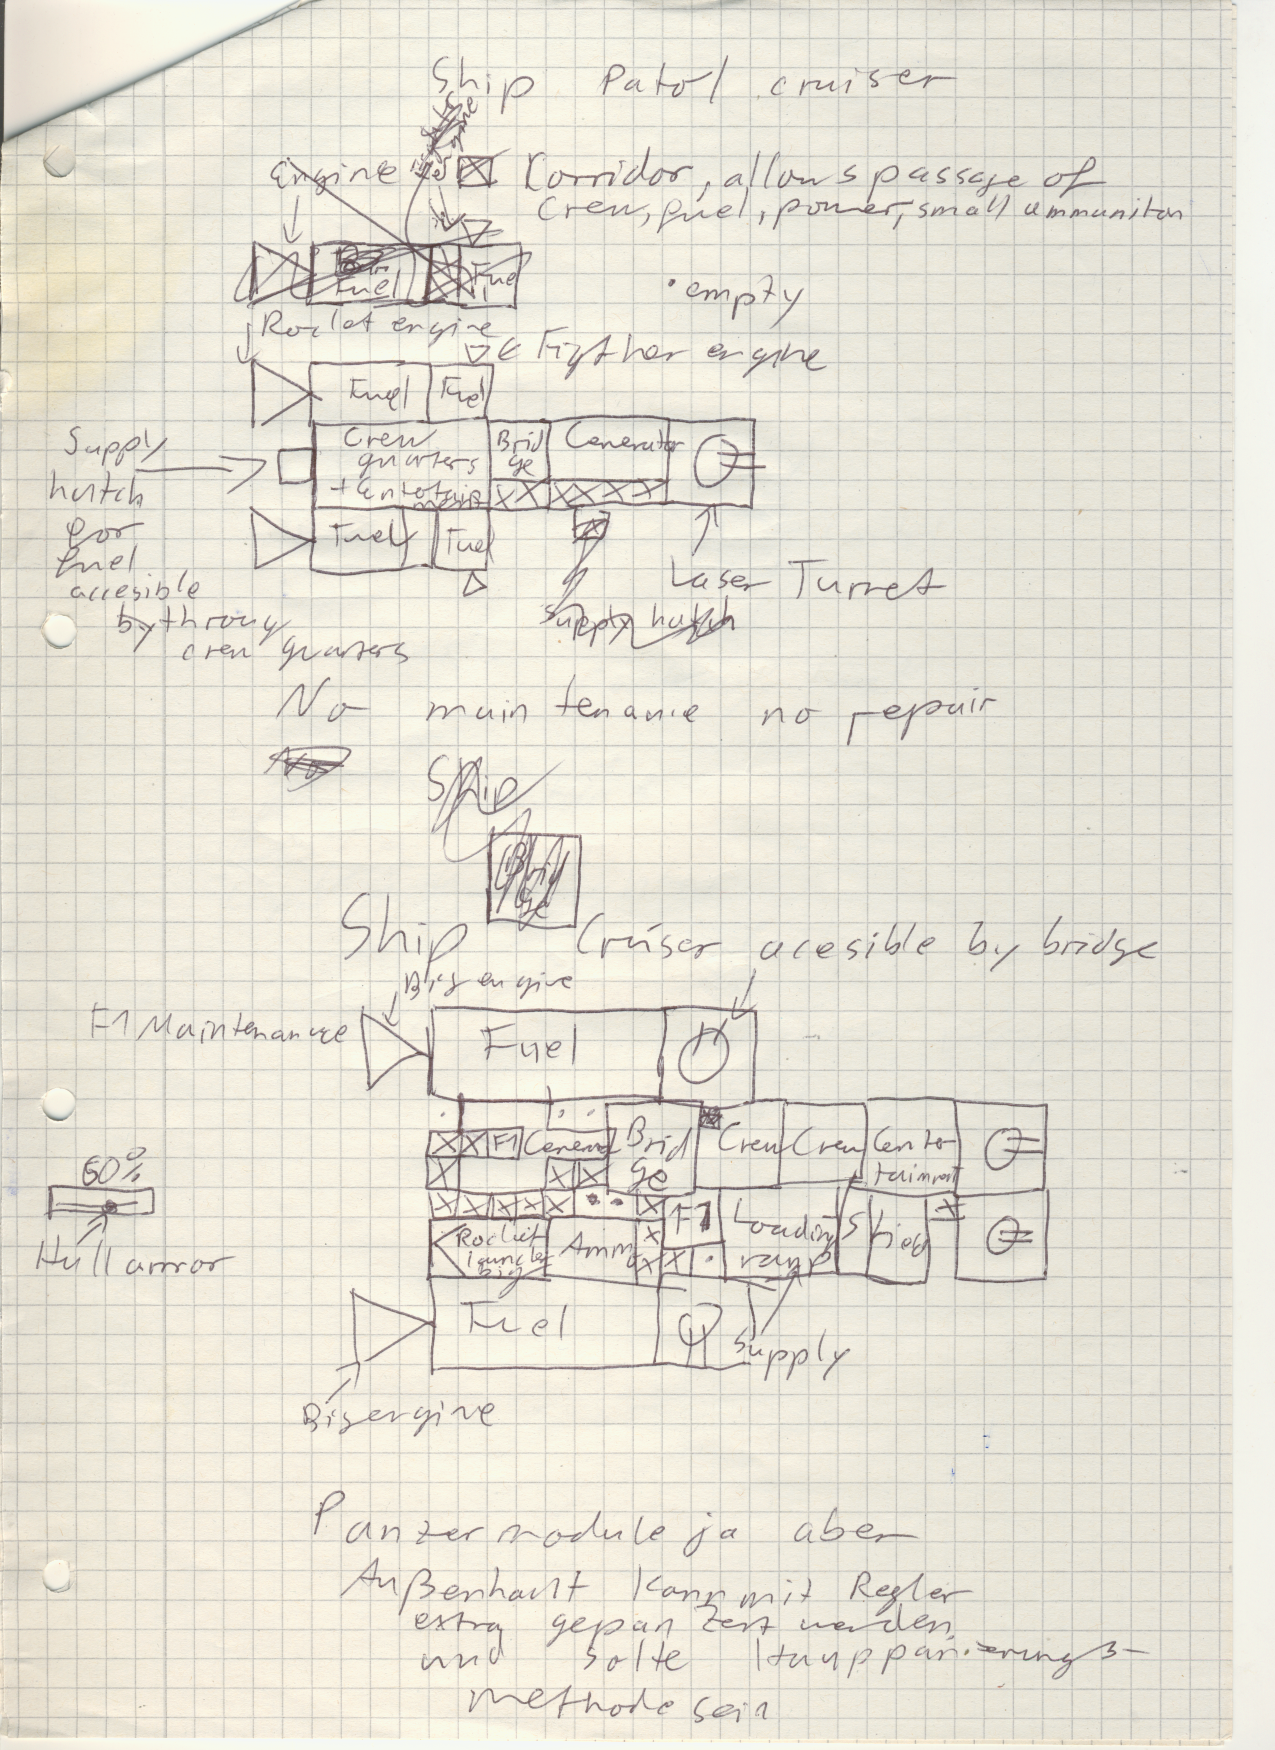 Ship Patol cruiser
Engine
Corridor, allows passage of
Crew, fuel, power, small ammuniton
Fuel
Fuel
• empty
Rocket engine
Figther engine
Fuel
Fuel
Supply
hatch
for
fuel
accesible
by throug
crew quarters
Crew
quarters
+ Entertain
ment
Brid
ge
Generator
Fuel
Fuel
Laser Turret
Supply hatch
No maintenance no repair
Ship
Brid
ge
Ship Cruiser acesible by bridge
Big engine
F1 Maintenance
Fuel
F1
General
Brid
ge
Crew
Crew
Enter
tainment
60%
Hull armor
Rocket
launcher
big
Ammo
F1
Loading
ramp
Shield
Fuel
Supply
Big engine
Panzermodule ja aber
Außenhaut kann mit Regler
extra gepanzert werden
und solte Hauppanzierungs-
methode sein